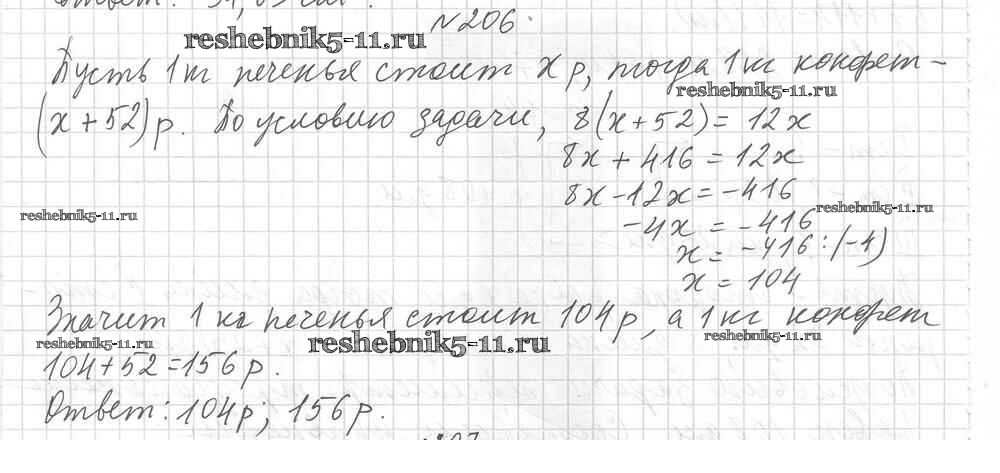 №206.
reshebnik5-11.ru
Пусть 1 кг печенья стоит x р, тогда 1 кг конфет –
reshebnik5-11.ru
(x+52) р. По условию задачи, 8(x+52)=12x
8x+416=12x
8x-12x=-416
reshebnik5-11.ru
reshebnik5-11.ru
-4x=-416
x=-416:(-4)
x=104
Значит 1 кг печенья стоит 104 р, а 1 кг конфет
reshebnik5-11.ru
reshebnik5-11.ru
reshebnik5-11.ru
104+52=156 р.
Ответ: 104 р; 156 р.